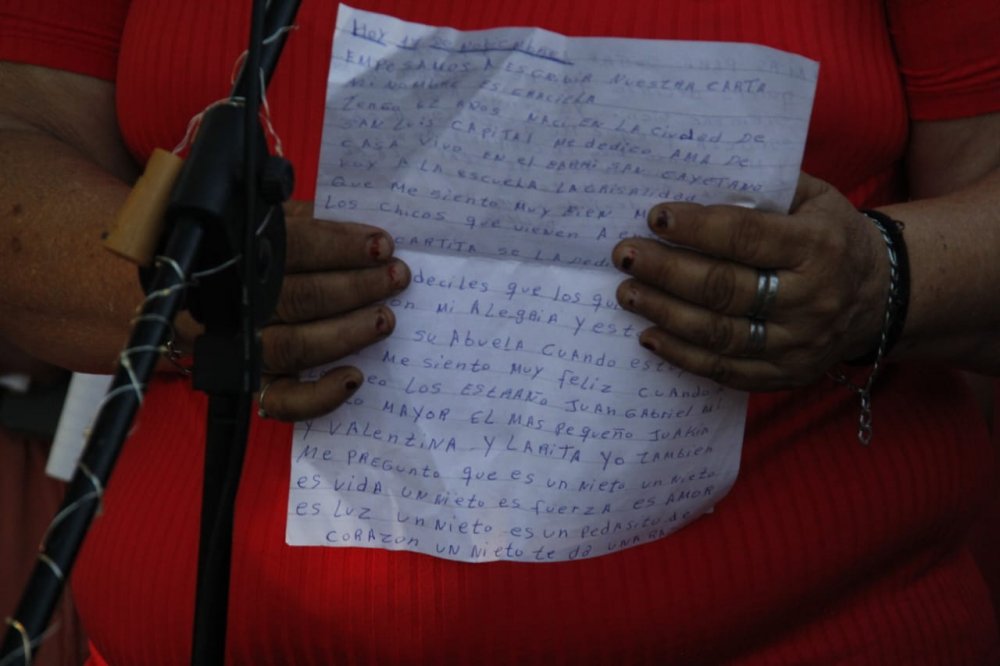 HOY 14 DE NOVIEMBRE
EMPESAMOS A ESCRIBIR NUESTRA CARTA
MI NOMBRE ES GRACIELA
TENGO 62 AÑOS NACI EN LA CIUDED DE
SAN LUIS CAPITAL ME DEDICO AMA DE
CASA VIVO EN EL BARRI SAN CAYETANO
VOY A LA ESCUELA LA CRISALIDA
QUE ME SIENTO MUY BIEN
LOS CHICOS QUE VIENEN A
CARTITA SE LA
DECILES QUE LOS
MI ALEGRIA Y
SU ABUELA CUANDO
ME SIENTO MUY FELIZ CUANDO
LOS ESTRAÑO JUAN GABRIEL MI
MAYOR EL MAS PEQUEÑO JUAKIN
Y VALENTINA Y LARITA YO TAMBIEN
ME PREGUNTO QUE ES UN NIETO UN NIETO
ES VIDA UN NIETO ES FUERZA ES AMOR
ES LUZ UN NIETO ES UN PEDASITO DE
CORAZON UN NIETO TE DA UNA